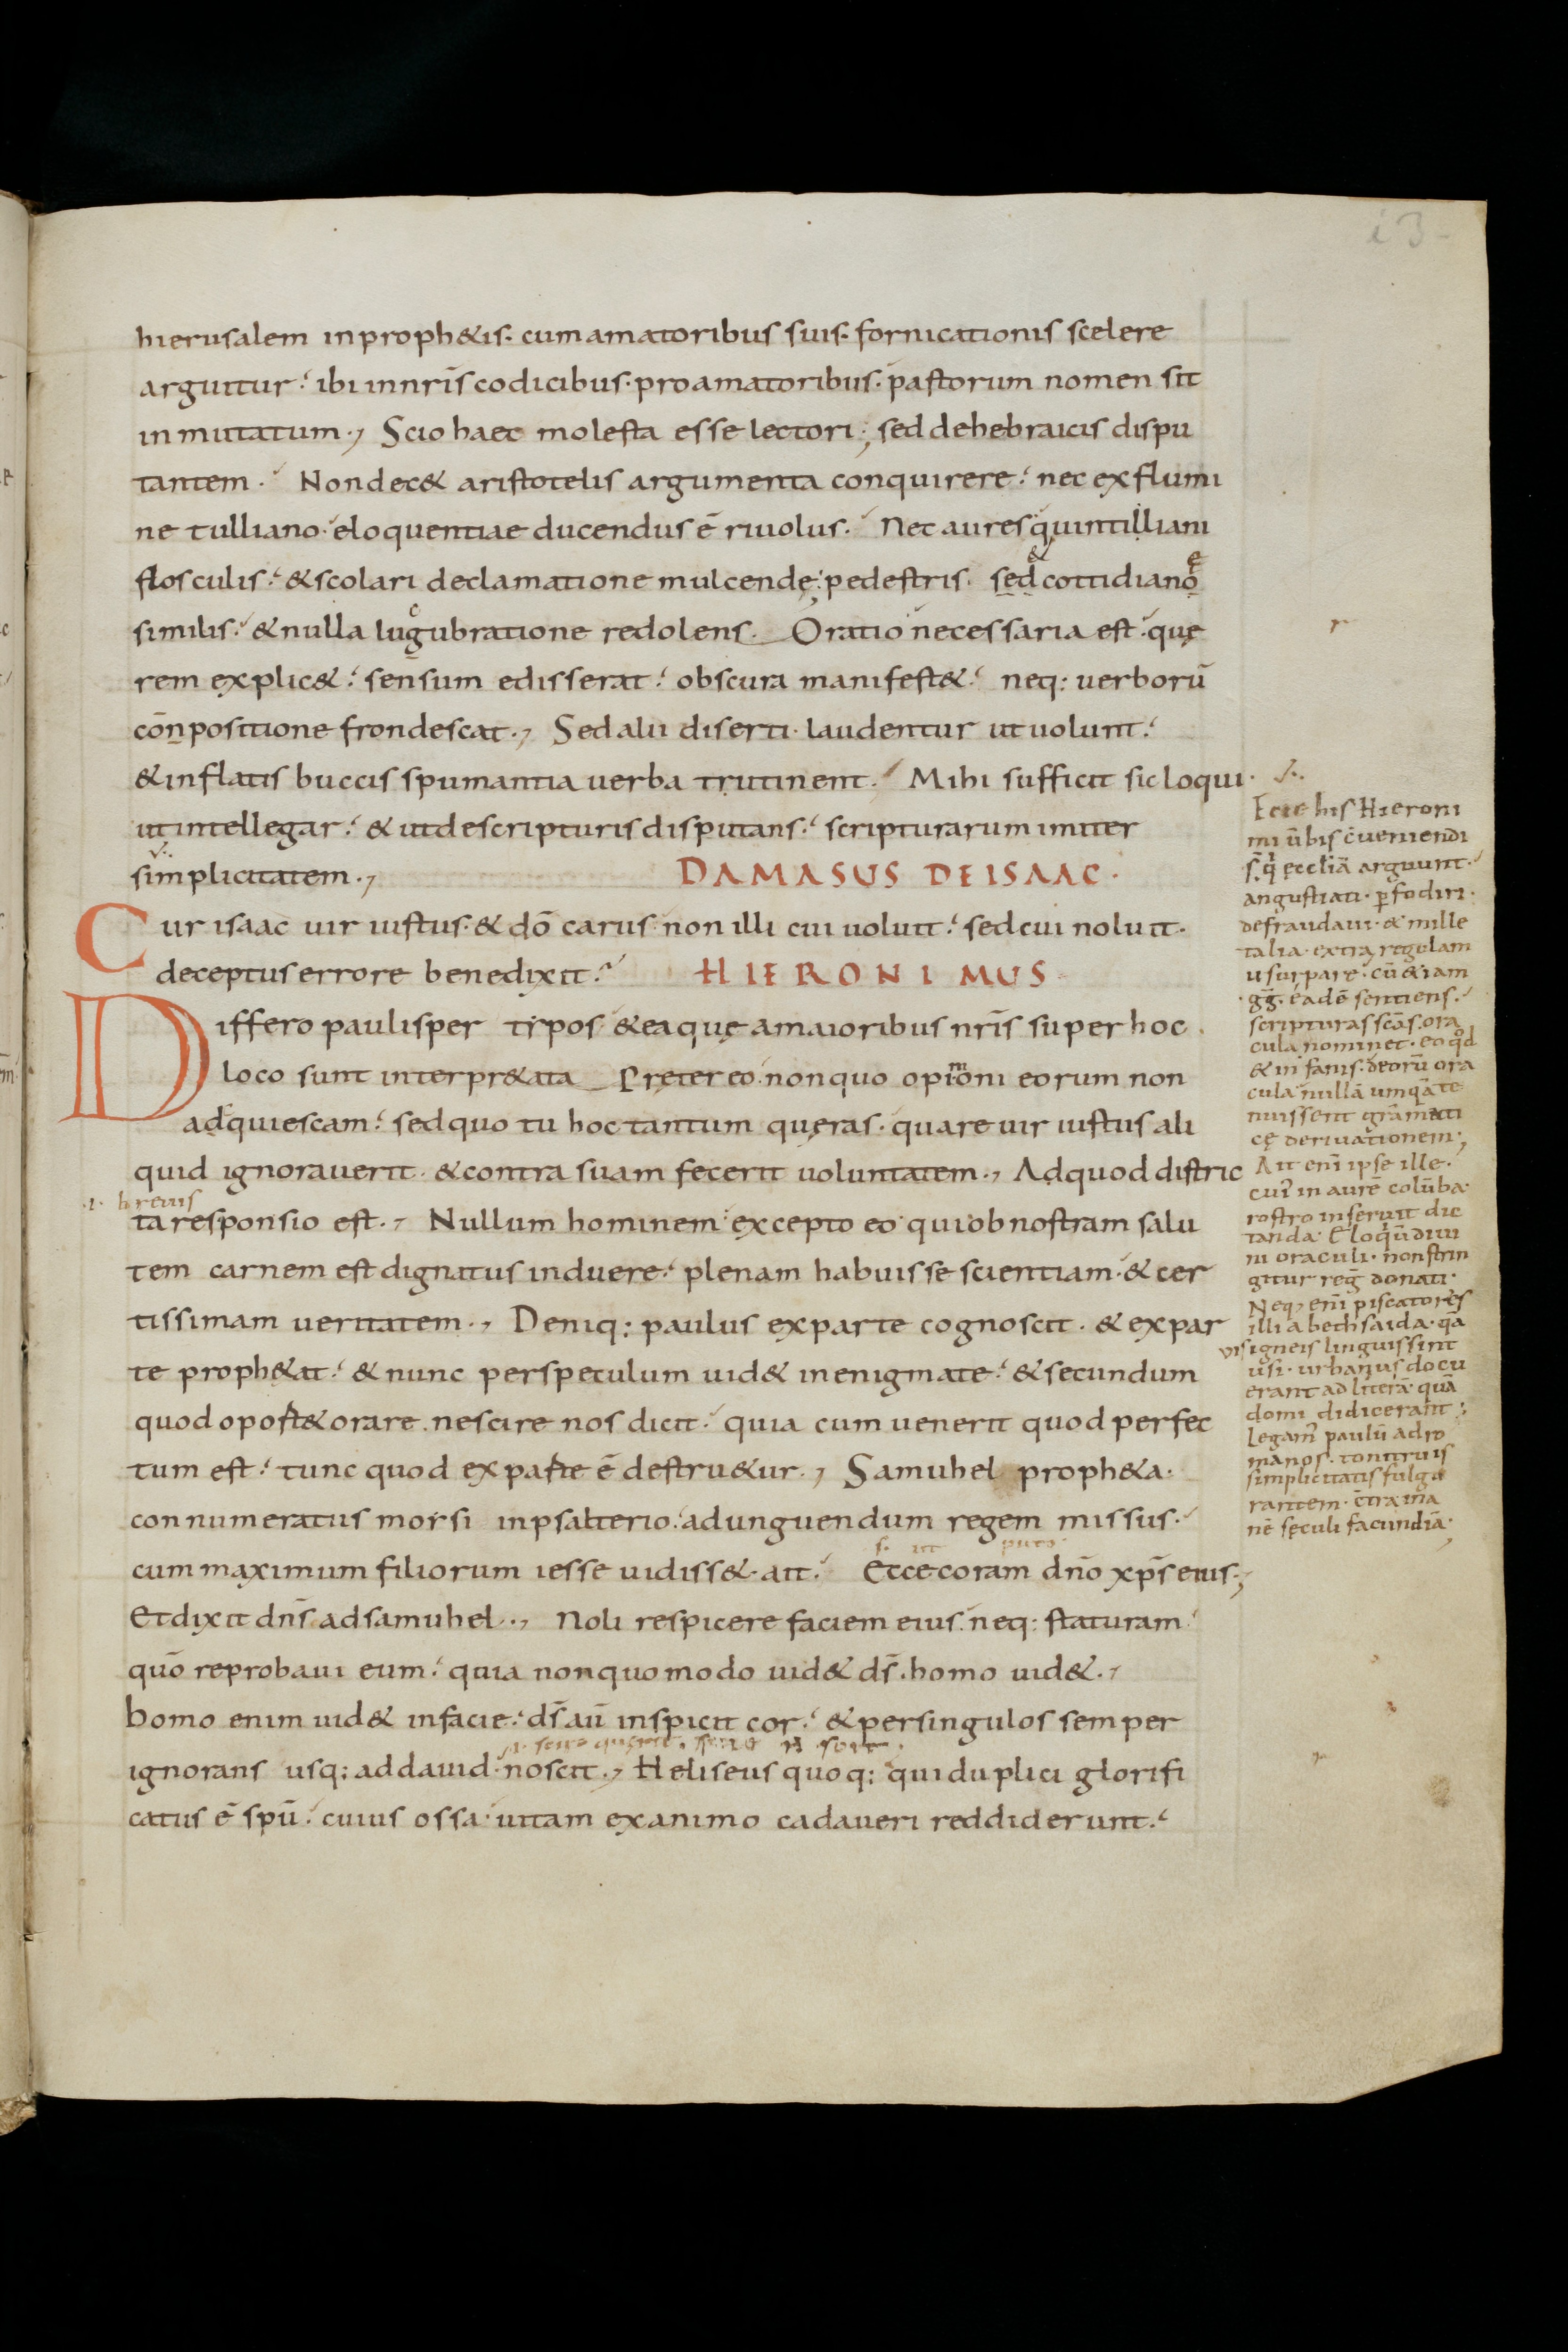 i3
hierusalem in proph&is. cum amatoribus suis. fornicationis scelere
arguitur. ibi in nr̄is codicibus. pro amatoribus. pastorum nomen sit
inmutatum., Scio haec molesta esse lectori; sed de hebraicis dispu
tantem. Non dec& aristotelis argumenta conquirere. nec ex flumi
ne tulliano. eloquentiae ducendus ē riuolus. Nec aures quintilliani
flosculis. & scolari declamatione mulcendę. pedestris. sed & cottidiano ę
similis. & nulla lugubratione redolens. Oratio necessaria est. quę
rem explic&. sensum edisserat. obscura manifest&. neq: uerborū
cōnpositione frondescat., Sed alii diserti. laudentur ut uolunt.
& inflatis buccis spumantia uerba trutinent. Mihi sufficit sic loqui.
ut intellegar. & ut de scripturis disputans. scripturarum imiter
simplicitatem.,
DAMASUS DE ISAAC.
Cur isaac uir iustus. & dō carus. non illi cui uoluit. sed cui noluit.
deceptus errore benedixit.
HIERONIMUS
Differo paulisper typos & ea quę a maioribus nr̄is super hoc
loco sunt interpr&ata Pręter eo. non quo opinioni eorum non
adquiescam. sed quo tu hoc tantum quęras. quare uir iustus ali
quid ignorauerit. & contra suam fecerit uoluntatem., Ad quod distric
.i. breuis
ta responsio est., Nullum hominem excepto eo qui ob nostram salu
tem carnem est dignatus induere. plenam habuisse scientiam. & cer
tissimam ueritatem., Deniq: paulus ex parte cognoscit. & ex par
te proph&at. & nunc per speculum uid& in enigmate. & secundum
quod oport& orare. nescire nos dicit. quia cum uenerit quod perfec
tum est. tunc quod ex parte ē destru&ur., Samuhel proph&a.
connumeratus morsi in psalterio. ad unguendum regem missus.
s. ut puto
cum maximum filiorum iesse uidiss&. ait. Et ce coram dn̄o xp̄s eius.,
Et dixit dn̄s ad samuhel., Noli respicere faciem eius. neq: staturam
quō reprobaui eum. quia non quomodo uid& d̄s. homo uid&.,
homo enim uid& in facie. d̄s aū inspicit cor. & per singulos semper
ignorans usq: ad dauid. noscit., Heliseus quoq: qui duplici glorifi
catus ē spū. cuius ossa. uitam exanimo cadaueri reddiderunt.
Ecce his Hieroni
mi ūbis c̄ueniendi
s̄. q̄ ęccliā arguunt.
angustiati. ꝑfodiri.
defraudaui. & mille
talia. extra regulam
usurpare. cū & iam
.gḡ. eadē sentiens.
scripturas sc̄as. ora
cula nominet. eo qd̄
& in fanis. deorū ora
cula nullā umqā te
nuissent gramati
cę deriuationem.,
Ait enī ipse ille.
cui' in aurē colūba.
rostro inseruit dic
tanda. Eloquiū diui
ni oraculi. non strin
gitur reg̅ donati.
Neq, enī piscatores
illi a bethsaida. qā
uisigneis linguis sint
usi. urbanus docu
erant ad literā. quā
domi didicerant;
Legam' paulū ad ro
manos. tonitruis
simplicitatis fulgu
rantem. c̄tra ina
nē sęculi facundiā.